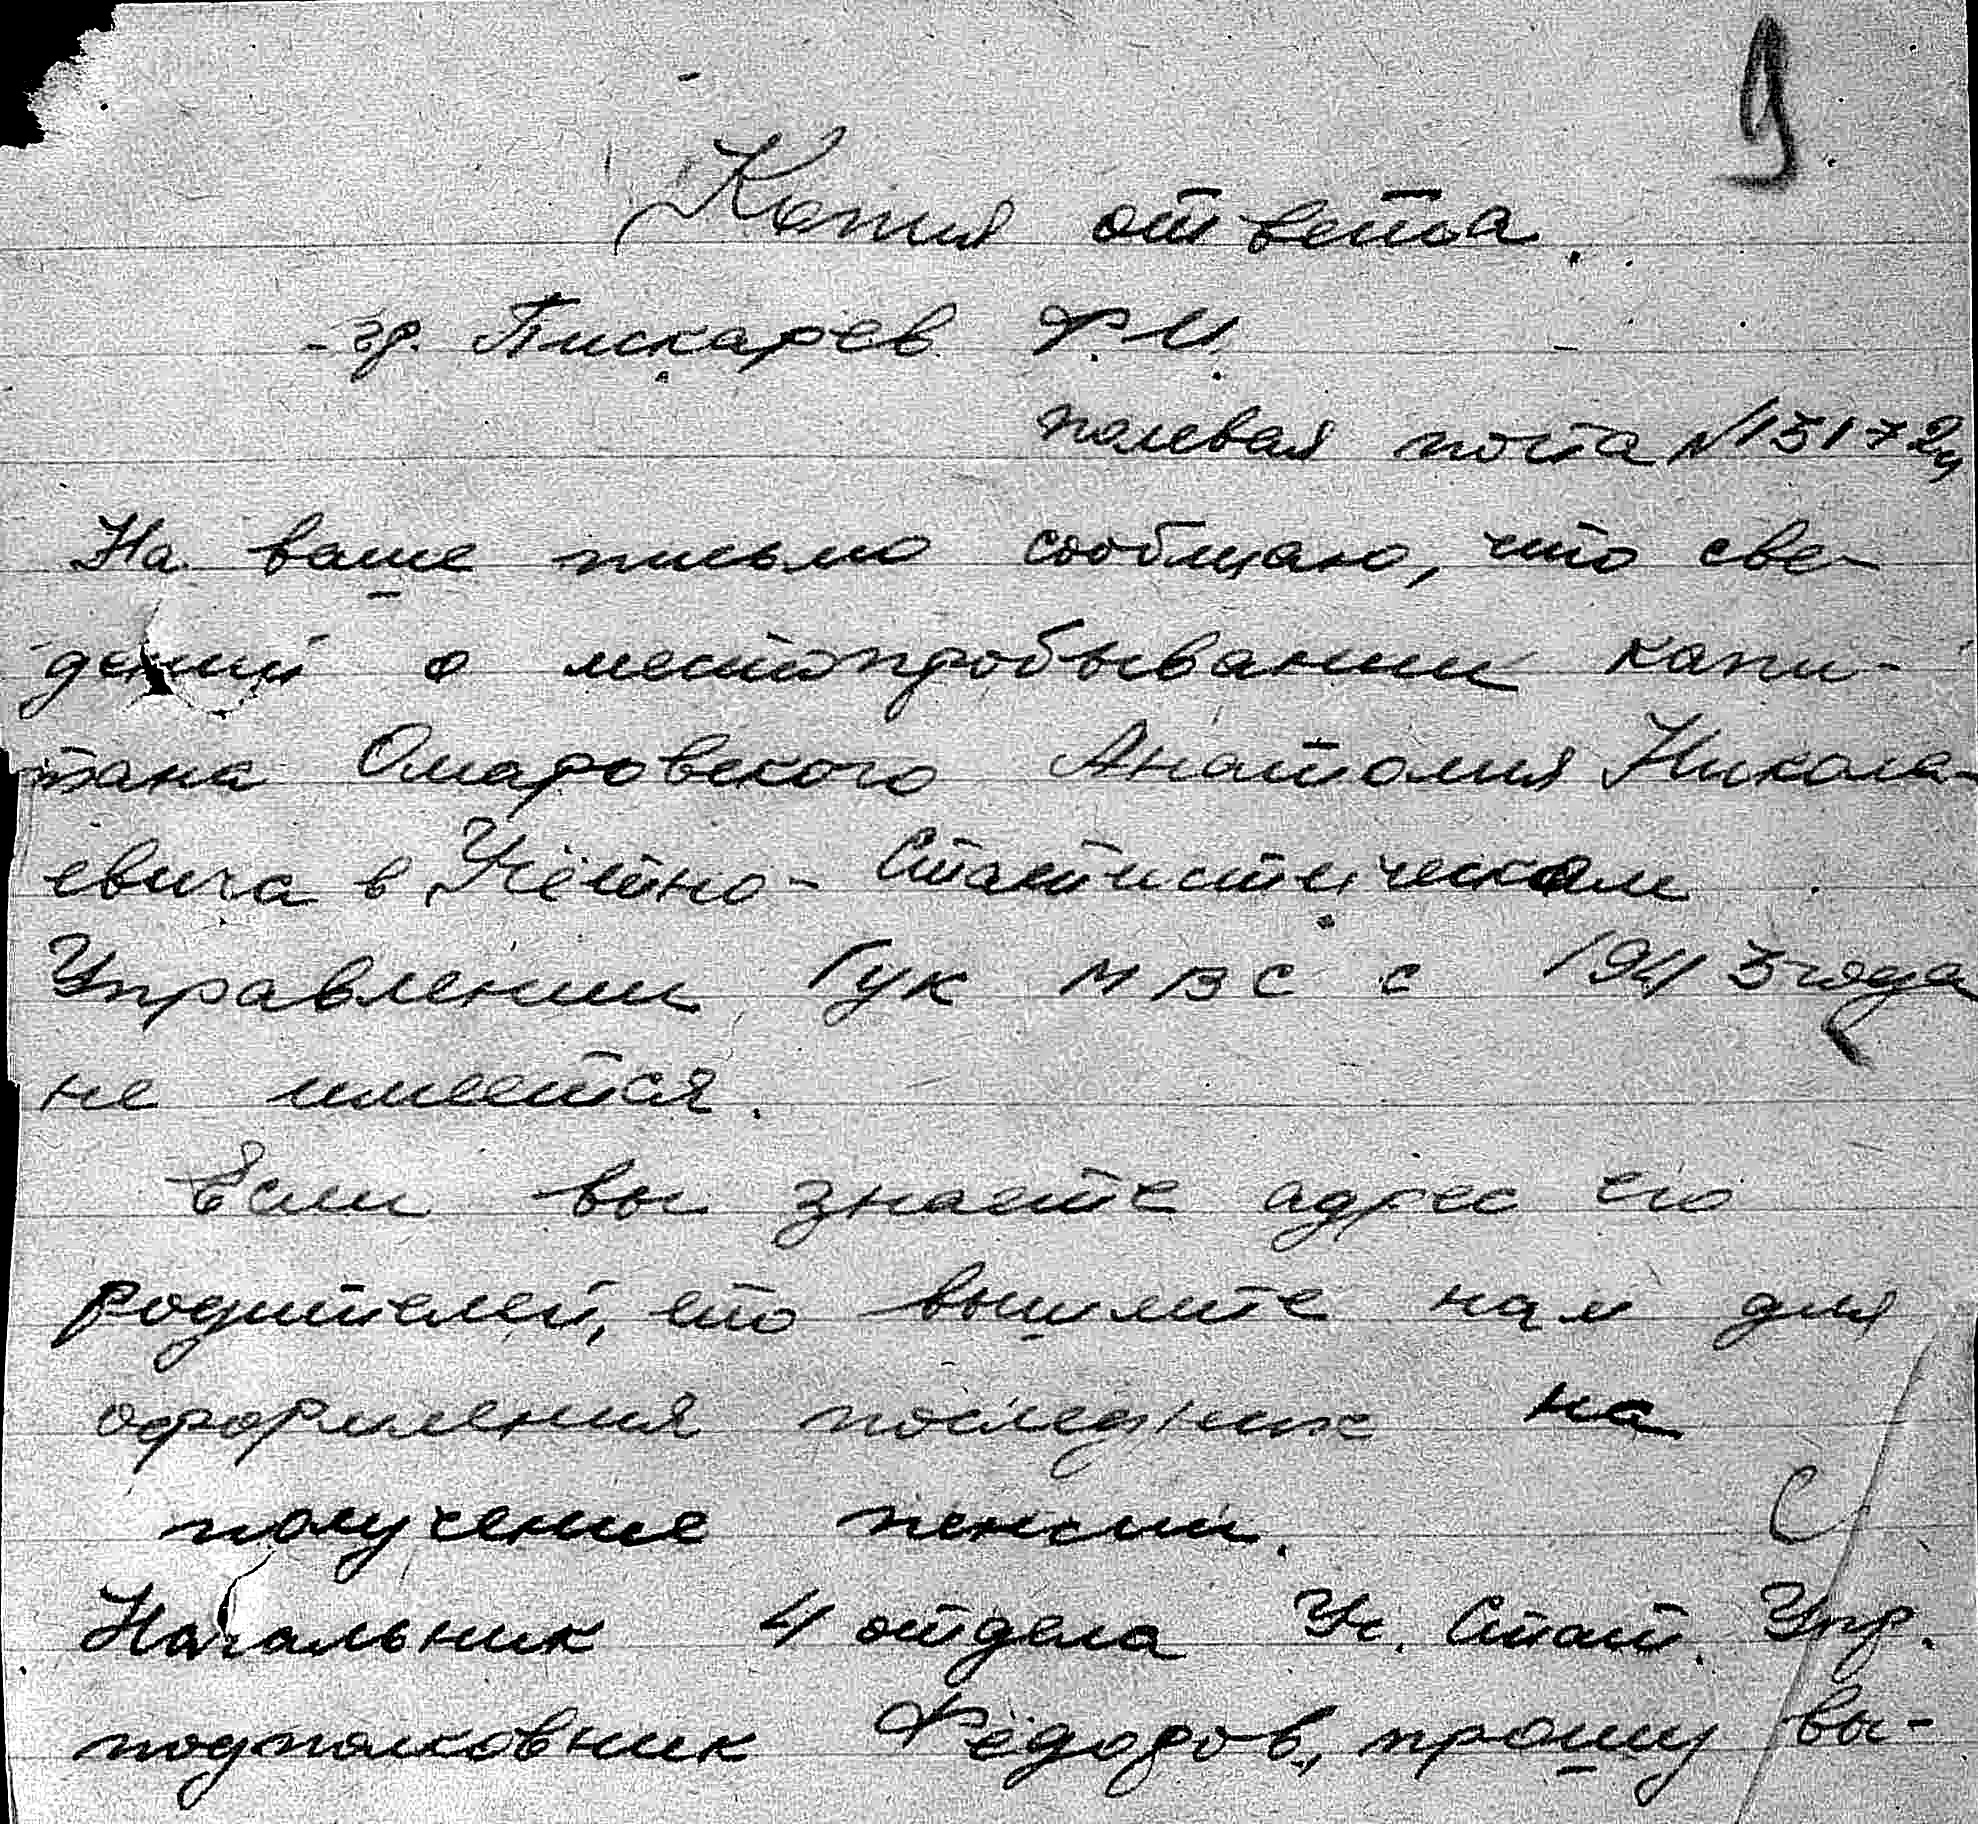 9
Копия ответа.
гр. Пискарев Ф.И.
полевая почта №15172ц
На ваше письмо сообщаю, что све-
дений о местопробывании капи-
тана Омаровского Анатолия Никола-
евича в Учётно-Статистическом
Управлении ГУК МВС с 1943 года
не имеется.
Если вы знаете адрес его
родителей, то вышлите нам для
оформления последних на
получение пенсии.
Начальник 4 отдела Уч. Стат. Упр.
подполковник Фёдоров, прошу вы-